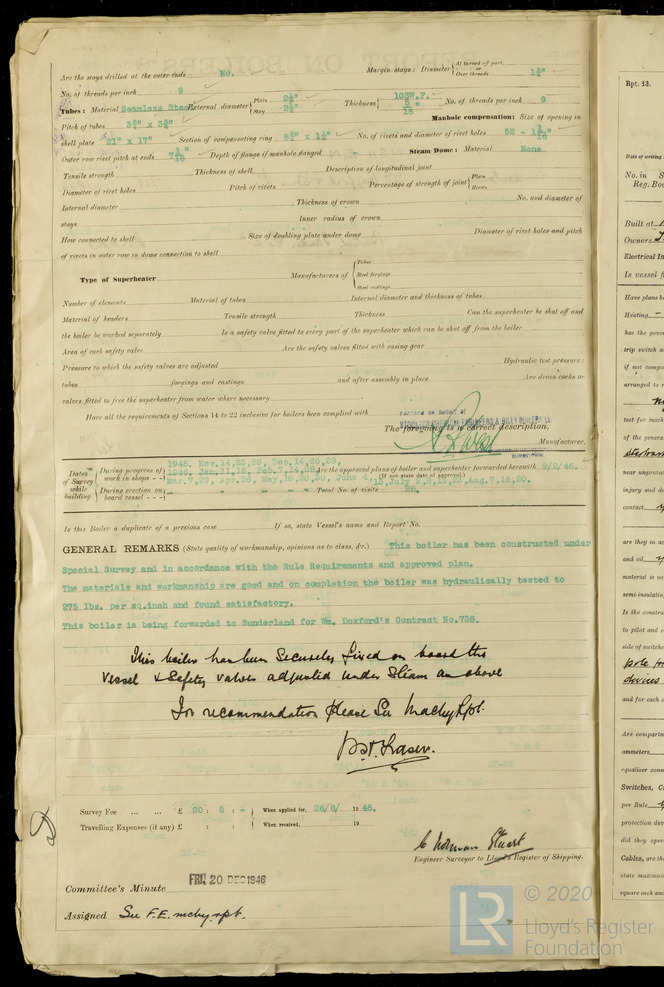 Are the stays drilled at the outer ends No. Margin stays: Diameter { At turned off part, or Over threads 1¾"
No. of threads per inch 9
Tubes: Material Seamless Steel External diameter { Plain 2½" Stay 2½" Thickness { 10SW.F. 5/16" No. of threads per inch 9
Pitch of tubes 3¾" x 3¾" Manhole compensation: Size of opening in
shell plate 21" x 17" Section of compensating ring No. of rivets and diameter of rivet holes 52 -
Outer row rivet pitch at ends Depth of flange if manhole flanged - Steam Dome: Material None.
Tensile strength Thickness of shell Description of longitudinal joint
Diameter of rivet holes Pitch of rivets Percentage of strength of joint { Plate Rivets
Internal diameter Thickness of crown No. and diameter of
stays Inner radius of crown
How connected to shell Size of doubling plate under dome Diameter of rivet holes and pitch
of rivets in outer row in dome connection to shell
Type of Superheater Manufacturers of { Tubes Steel forgings Steel castings
Number of elements Material of tubes Internal diameter and thickness of tubes
Material of headers Tensile strength Thickness Can the superheater be shut off and
the boiler be worked separately Is a safety valve fitted to every part of the superheater which can be shut off from the boiler
Area of each safety valve Are the safety valves fitted with easing gear
Pressure to which the safety valves are adjusted Hydraulic test pressure:
tubes forgings and castings and after assembly in place Are drain cocks or
valves fitted to free the superheater from water where necessary
Have all the requirements of Sections 14 to 22 inclusive for boilers been complied with
The foregoing is a correct description,
Manufacturer.
Dates of Survey while building
During progress of work in shops - - 1945. Nov.14,23,29, Dec.14,20,28, 1946. Jan.
Mar.7,29, Apr.26, May,10,20,30, June 4,
Are the approved plans of boiler and superheater forwarded herewith 9/2/46.
(If not state date of approval.)
During erection on board vessel - - - Total No. of visits 26.
Is this Boiler a duplicate of a previous case If so, state Vessel's name and Report No.
GENERAL REMARKS (State quality of workmanship, opinions as to class, &c.) This boiler has been constructed under
Special Survey and in accordance with the Rule Requirements and approved plan.
The materials and workmanship are good and on completion the boiler was hydraulically tested to
275 lbs. per sq.inch and found satisfactory.
This boiler is being forwarded to Sunderland for Wm. Doxford's Contract No.758.
This boiler has been securely fixed on board this
vessel & safety valves adjusted under steam as above
For recommendation please see Machy Rpt.
Survey Fee ... ... £ 20 : 5 : - When applied for, 26/8/ 1946.
Travelling Expenses (if any) £ : : When received, 19
C Norman Stuart
Engineer Surveyor to Lloyd's Register of Shipping.
Committee's Minute FRI. 20 DEC 1946
Assigned See F.E. mchy. rpt.
Rpt. 13.
Date of writing
No. in
Reg. Boo
Built at
Owners
Electrical In
Is vessel f
Have plans b
Heating -
has the gover
trip switch a
if not compo
arranged to r
test for mach
of the genera
near unprotec
injury and da
contact
are they in ac
and oil
material is su
semi-insulatin
Is the constru
to pilot and v
side of switche
pole for
devices
and for each o
Are compartm
ammeters
equaliser conn
Switches, C
per Rule
protection dev
did they oper
Cables, are th
state maximum
square inch an
LR © 2020
Lloyd's Register
Foundation